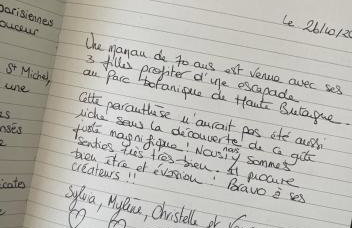 parisiennes
douceur
St Michel,
une
Le 26/10/20
Une maman de 70 ans est venue avec ses
3 filles profiter d'une escapade
au Parc botanique de Haute Bretagne.
Cette paranthèse n'aurait pas été aussi
riche sans la découverte de ce gîte
juste magnifique ! Nous nous y sommes
senties très très bien. Il procure
bien être et évasion ! Bravo à ses
créateurs !!
Sylvia, Mylène, Christelle et